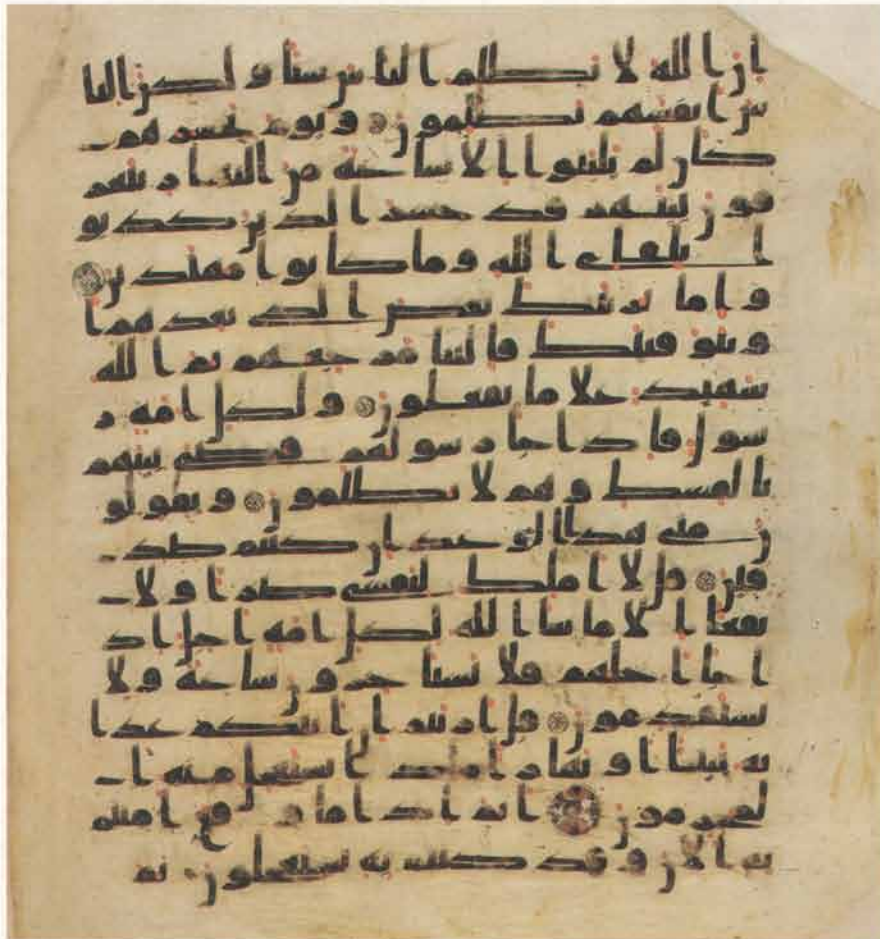 ان الله لا يظلم الناس شيا ولكن النا
س انفسهم يظلمون ويوم نحشرهم
كان لم يلبثوا الا ساعة من النهار يتعر
فون بينهم قد خسر الذين كذبو
ا بلقاء الله وما كانوا مهتدين
واما نرينك بعض الذي نعدهم ا
و نتوفينك فالينا مرجعهم ثم الله
شهيد علا ما يفعلون ولكل امة ر
سول فاذا جا رسولهم قضى بينهم
بالقسط وهم لا يظلمون ويقولو
ن متى هذا الوعد ان كنتم صد
قين قل لا املك لنفسى ضرا ولا
نفعا الا ما شا الله لكل امة اجل اذ
ا جا اجلهم فلا يستاخرون ساعة ولا
يستقدمون قل اريتم ان اتيكم عذا
به بيتا او نهارا ماذا يستعجل منه ا
لمجرمون اثم اذا ما وقع امنتم
به الان وقد كنتم به تستعجلون ثم